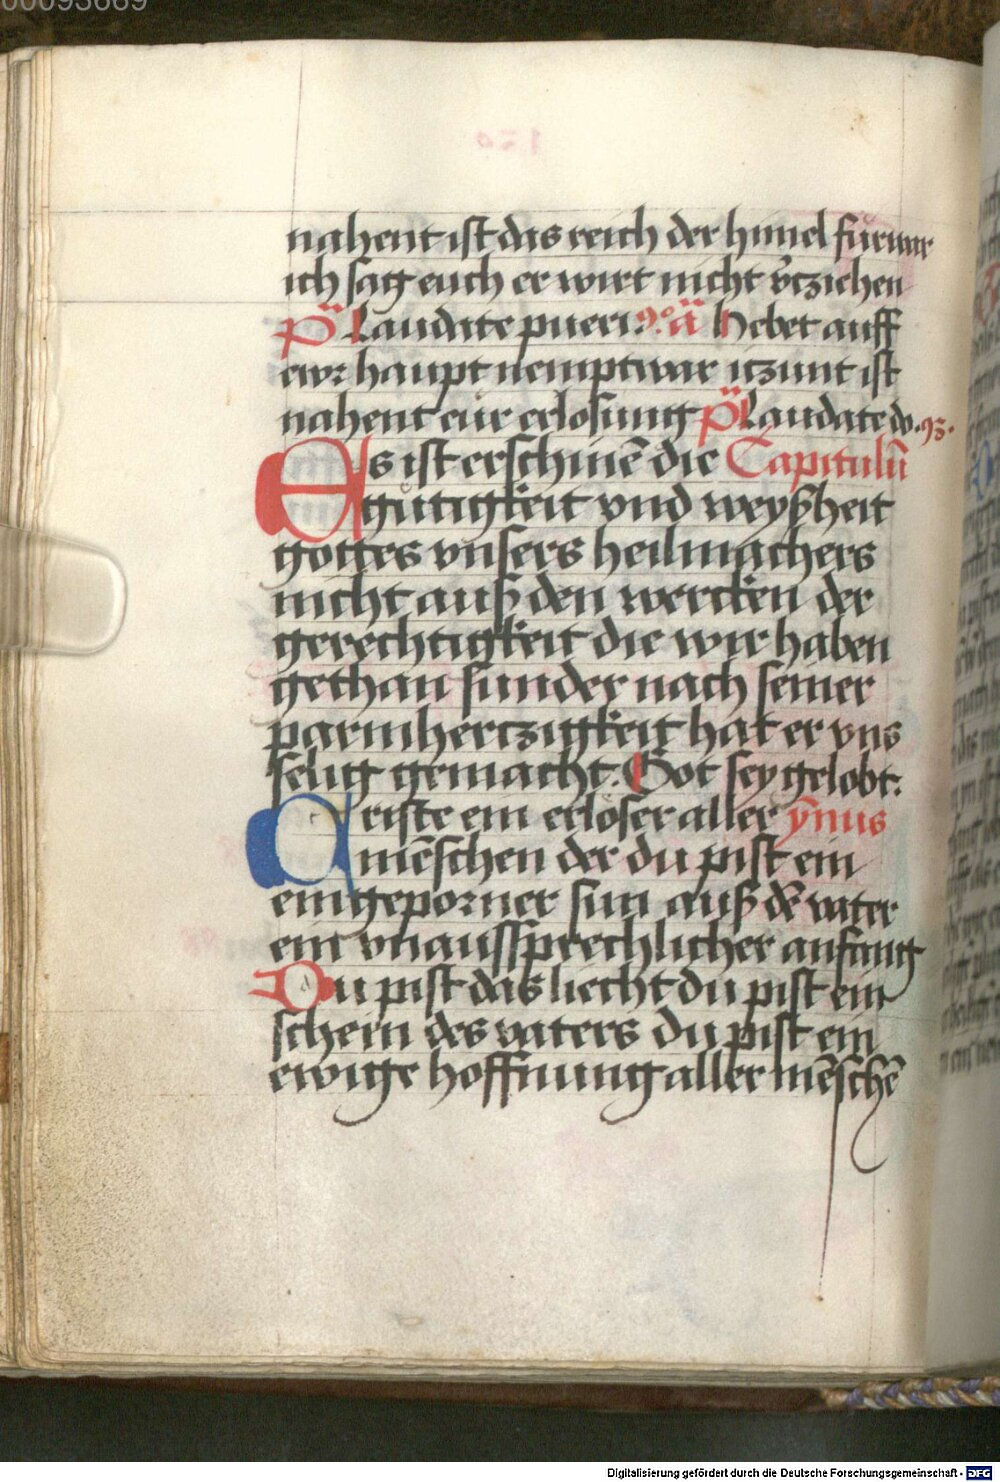 00093669
nahent ist das reich der himel fürwar
ich sag euch er wirt nicht v̄cziehen
p̄s Laudate pueri 9° ā Hebet auff
ewr haupt nempt war iczunt ist
nahent eür erlosung p̄s Laudate do. 93.
Es ist erschinē die Capitulū
gütigkeit vnd weyßheit
gottes vnsers heilmachers
nicht auß den wercken der
gerechtigkeit die wir haben
gethan sunder nach seiner
parmhertzigkeit hat er vns
selig gemacht. Got sey gelobt.
Criste ein erlöser aller ȳnus
mēschen der du pist ein
eingeporner sun auß dē vater
ein vnaussprechlicher anfang
Du pist das liecht du pist ein
schein des vaters du pist ein
ewige hoffnung aller mēschē
Digitalisierung gefördert durch die Deutsche Forschungsgemeinschaft - DFG